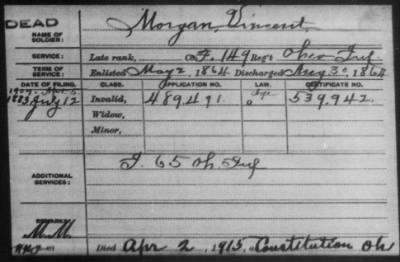 DEAD
NAME OF SOLDIER: Morgan, Vincent
SERVICE: Late rank, Co. F, 149 Reg't Ohio Inf
TERM OF SERVICE: Enlisted May 2, 1864 Discharged Aug 30, 1864
DATE OF FILING. CLASS. APPLICATION NO. LAW. CERTIFICATE NO.
1883 July 12 Invalid, 489491. 539942.
Widow,
Minor,
ADDITIONAL SERVICES: F. 65 Oh. Inf
REMARKS:
Died Apr 2, 1915, Constitution Oh